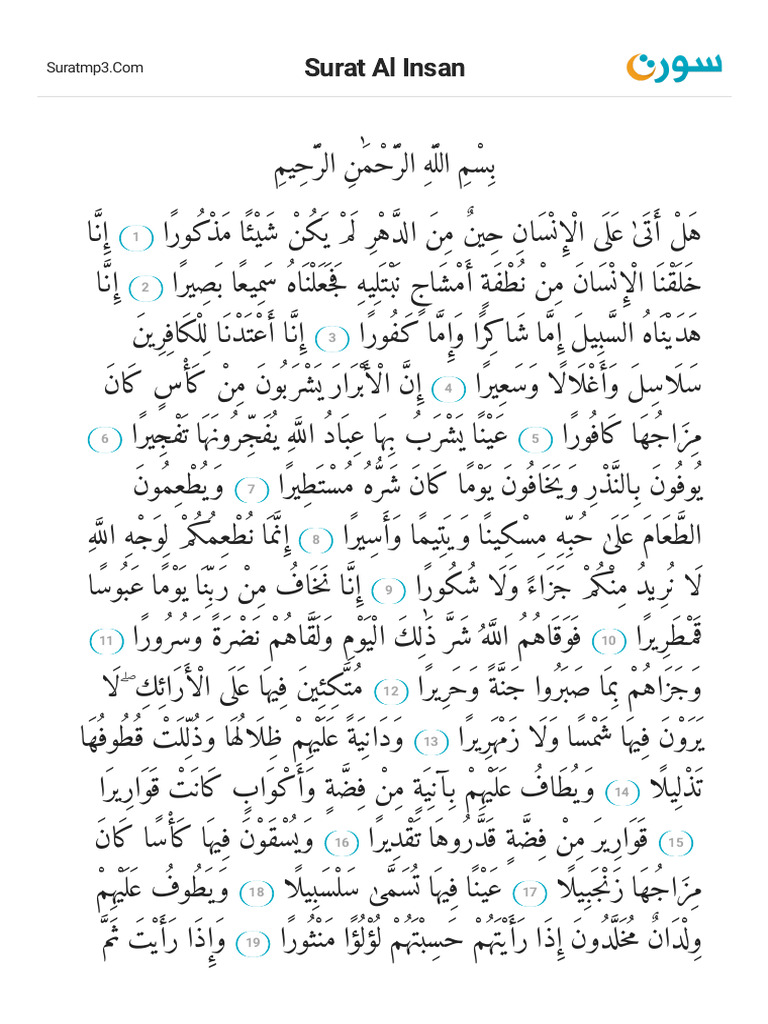 Suratmp3.Com
Surat Al Insan
سورة
بِسْمِ اللَّهِ الرَّحْمَٰنِ الرَّحِيمِ
هَلْ أَتَىٰ عَلَى الْإِنْسَانِ حِينٌ مِنَ الدَّهْرِ لَمْ يَكُنْ شَيْئًا مَذْكُورًا 1 إِنَّا
خَلَقْنَا الْإِنْسَانَ مِنْ نُطْفَةٍ أَمْشَاجٍ نَبْتَلِيهِ فَجَعَلْنَاهُ سَمِيعًا بَصِيرًا 2 إِنَّا
هَدَيْنَاهُ السَّبِيلَ إِمَّا شَاكِرًا وَإِمَّا كَفُورًا 3 إِنَّا أَعْتَدْنَا لِلْكَافِرِينَ
سَلَاسِلَ وَأَغْلَالًا وَسَعِيرًا 4 إِنَّ الْأَبْرَارَ يَشْرَبُونَ مِنْ كَأْسٍ كَانَ
مِزَاجُهَا كَافُورًا 5 عَيْنًا يَشْرَبُ بِهَا عِبَادُ اللَّهِ يُفَجِّرُونَهَا تَفْجِيرًا 6
يُوفُونَ بِالنَّذْرِ وَيَخَافُونَ يَوْمًا كَانَ شَرُّهُ مُسْتَطِيرًا 7 وَيُطْعِمُونَ
الطَّعَامَ عَلَىٰ حُبِّهِ مِسْكِينًا وَيَتِيمًا وَأَسِيرًا 8 إِنَّمَا نُطْعِمُكُمْ لِوَجْهِ اللَّهِ
لَا نُرِيدُ مِنْكُمْ جَزَاءً وَلَا شُكُورًا 9 إِنَّا نَخَافُ مِنْ رَبِّنَا يَوْمًا عَبُوسًا
قَمْطَرِيرًا 10 فَوَقَاهُمُ اللَّهُ شَرَّ ذَٰلِكَ الْيَوْمِ وَلَقَّاهُمْ نَضْرَةً وَسُرُورًا 11
وَجَزَاهُمْ بِمَا صَبَرُوا جَنَّةً وَحَرِيرًا 12 مُتَّكِئِينَ فِيهَا عَلَى الْأَرَائِكِ ۖ لَا
يَرَوْنَ فِيهَا شَمْسًا وَلَا زَمْهَرِيرًا 13 وَدَانِيَةً عَلَيْهِمْ ظِلَالُهَا وَذُلِّلَتْ قُطُوفُهَا
تَذْلِيلًا 14 وَيُطَافُ عَلَيْهِمْ بِآنِيَةٍ مِنْ فِضَّةٍ وَأَكْوَابٍ كَانَتْ قَوَارِيرَا
15 قَوَارِيرَ مِنْ فِضَّةٍ قَدَّرُوهَا تَقْدِيرًا 16 وَيُسْقَوْنَ فِيهَا كَأْسًا كَانَ
مِزَاجُهَا زَنْجَبِيلًا 17 عَيْنًا فِيهَا تُسَمَّىٰ سَلْسَبِيلًا 18 وَيَطُوفُ عَلَيْهِمْ
وِلْدَانٌ مُخَلَّدُونَ إِذَا رَأَيْتَهُمْ حَسِبْتَهُمْ لُؤْلُؤًا مَنْثُورًا 19 وَإِذَا رَأَيْتَ ثَمَّ